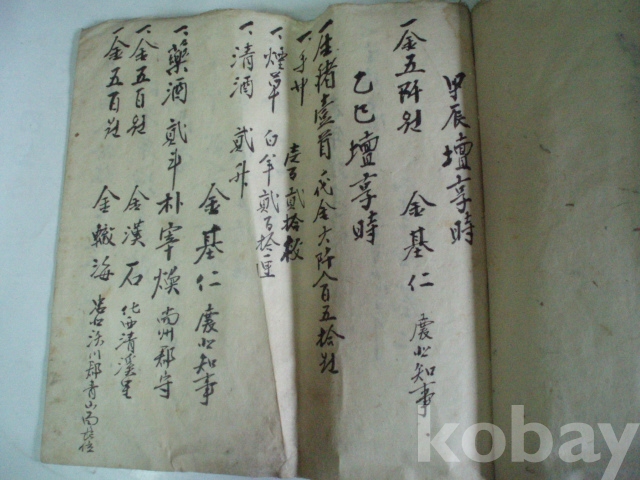 甲辰壇享時
一金五阡원 金基仁 慶北知事
乙巳壇享時
一生猪壹首 代金大阡八百五拾원
一手巾 壹百貳拾枚
一煙草 白羊貳百拾匣
一淸酒 貳升 金基仁 慶北知事
一藥酒 貳斗 朴宰煥 尙州郡守
一金五百원 金漢石 化西淸溪里
一金五百원 金 海 川郡靑山面
kobay